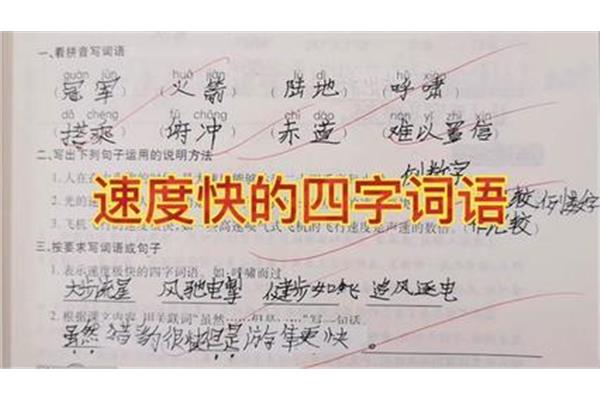 一、看拼音写词语
guān jūn huǒ jiàn lù dì hū xiào
(冠军) (火箭) (陆地) (呼啸)
dā chéng fǔ chōng chì dào nán yǐ zhì xìn
(搭乘) (俯冲) (赤道) (难以置信)
二、写出下列句子运用的说明方法
列数字
速度快的四字词语
三、按要求写词语或句子
1. 表示速度极快的四字词语。如:呼啸而过
大步流星 风驰电掣 健步如飞 追风逐电
2. 根据课文内容,用关联词“虽然……但是……”写一句话。
虽然猎豹很快但是游隼更快。